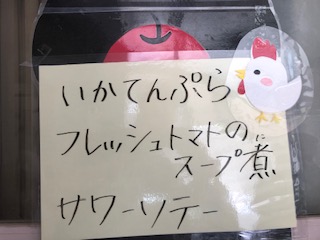 いかてんぷら
フレッシュトマトの
スープ煮
サワーソテー